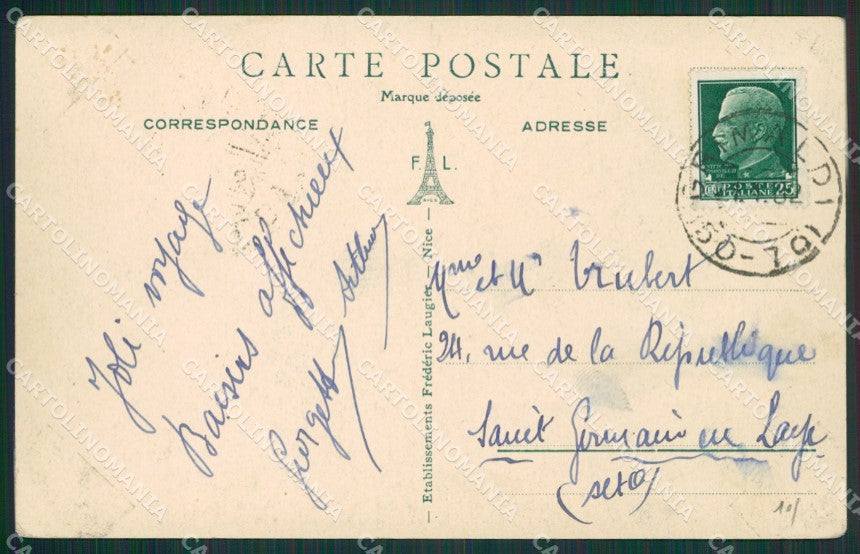 CARTE POSTALE
Marque déposée
CORRESPONDANCE
ADRESSE
F. L.
NICE
Joli voyage
Baisers affectueux
Georgette Arthur
Etablissements Frédéric Laugier — Nice
Mme et Mr Trubert
24, rue de la République
Saint Germain en Laye
(Set O)
POSTE
ITALIANE 25
GRIMALDI
10/
CARTOLINOMANIA